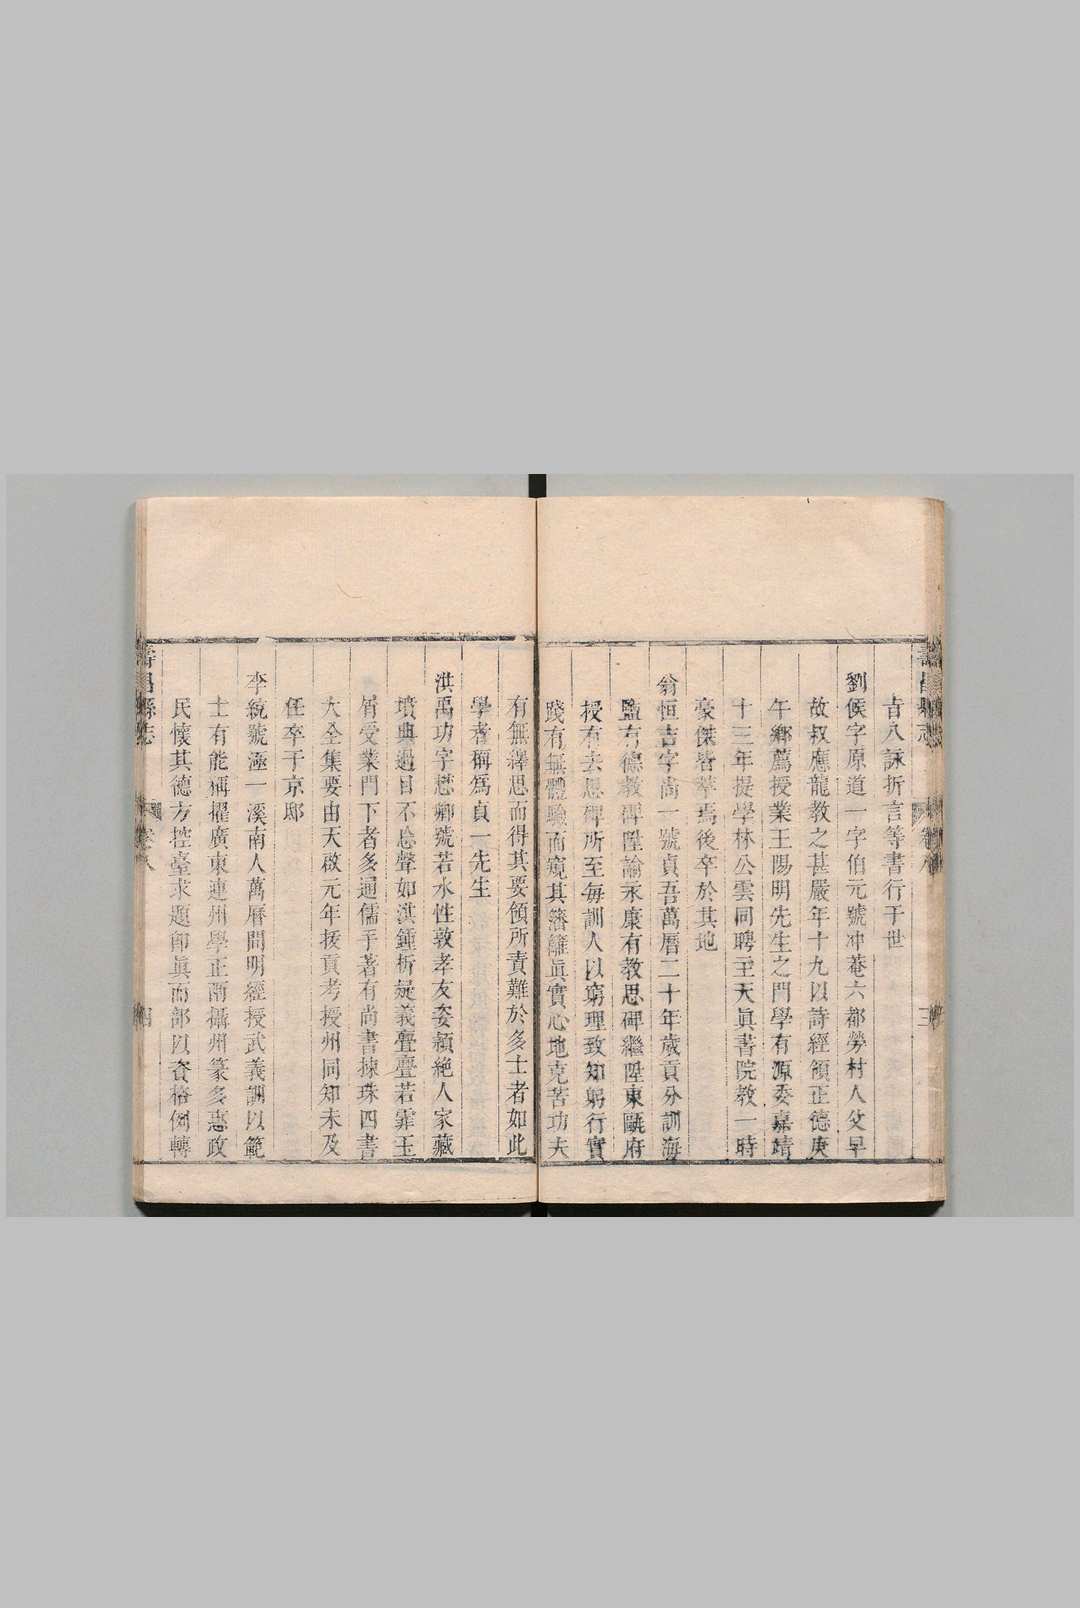 壽昌縣志
卷八
三
古八詠折言等書行于世
劉俟字原道一字伯元號冲菴六都勞村人父早
故叔應龍教之甚嚴年十九以詩經領正德庚
午鄉薦授業王陽明先生之門學有源委嘉靖
十三年提學林公雲同聘主天眞書院教一時
豪傑皆萃焉後卒於其地
翁恒吉字尚一號貞吾萬曆二十年歲貢分訓海
鹽有德教碑陞諭永康有教思碑繼陞東甌府
授有去思碑所至每訓人以窮理致知躬行實
踐有無體驗而窺其籓籬眞實心地克苦功夫
有無繹思而得其要領所責難於多士者如此
學者稱爲貞一先生
洪禹功字懋卿號若水性敦孝友姿穎絶人家藏
墳典過目不忘聲如洪鍾析疑義亹亹若霏玉
屑受業門下者多通儒手著有尚書揀珠四書
大全集要由天啟元年拔貢考授州同知未及
任卒于京邸
李統號 一溪南人萬曆間明經授武義訓以範
士有能稱擢廣東連州學正兩攝州篆多惠政
民懷其德方控臺求題卽眞而部以資格例轉
壽昌縣志
卷八
四